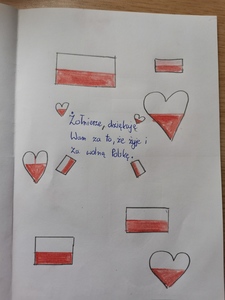 Żołnierze, dziękuję
Wam za to, że żyję i
za wolną Polskę.